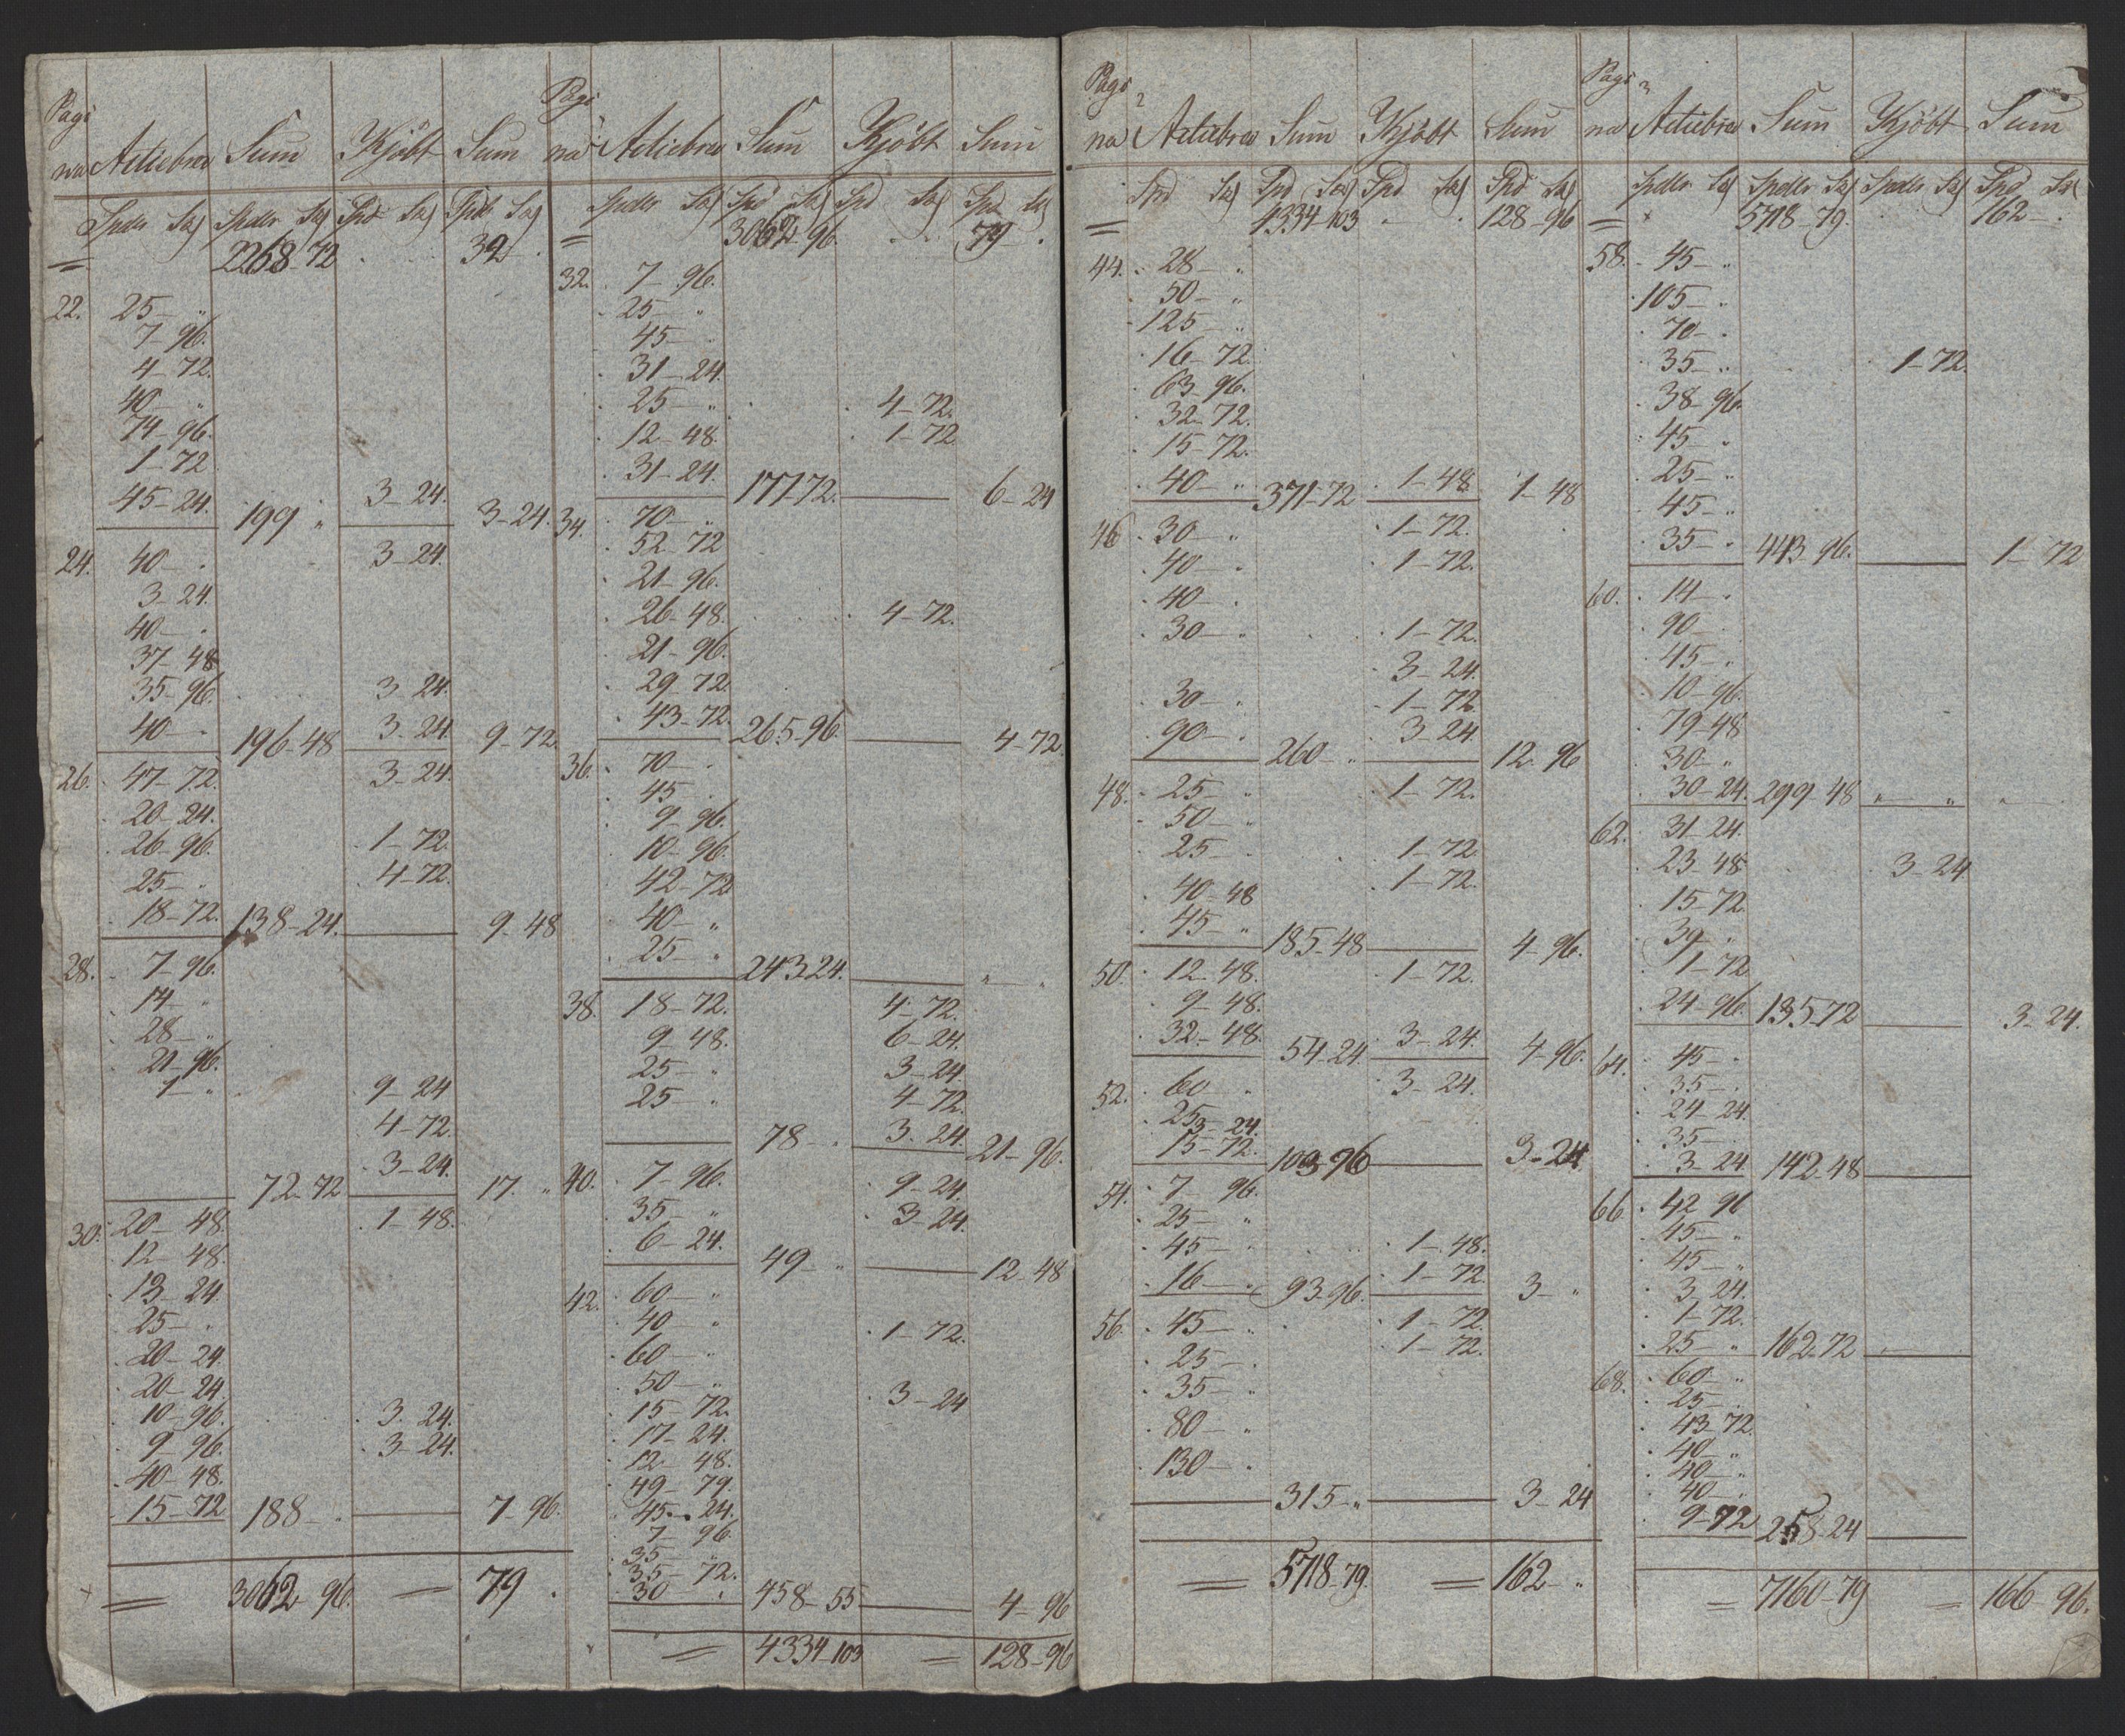 Pagi
na Actiebrev Sum Kjöbt Sum
Spdlr Sk Spdlr Sk Spd Sk Spdlr Sk
= 2268-72 . . 32 .
22. 25 - „
7 - 96.
4 - 72.
40 - „
74 - 96.
1 - 72
45 - 24. 199 „ 3 - 24. 3 - 24.
24. 40 - . 3 - 24.
3 - 24.
40 - .
37 - 48
35 - 96. 3 - 24.
40 - . 196-48 3 - 24 9 - 72
26. 47 - 72. 3 - 24.
20 - 24.
26 - 96. 1 - 72.
25 - . 4 - 72.
18 - 72. 138-24. 9 - 48
28. 7 - 96.
14 - „
28 - „
21 - 96.
1 - „ 9 - 24
4 - 72.
72-72 3 - 24. 17. „
30. 20 - 48. 1 - 48.
12 - 48.
13 - 24.
25 - .
20 - 24.
20 - 24.
10 - 96. 3 - 24.
9 - 96. 3 - 24.
40 - 48.
15 - 72 188 - . 7 - 96.
= 3062-96. = 79 .
Pagi
na Actiebrev Sum Kjöbt Sum
Spdlr Sk Spd Sk Spd Sk Spd Sk
= 3062-96. 79 .
32. 7 - 96.
25 - „
45 - .
31 - 24.
25 - „ 4 - 72.
12 - 48. 1 - 72
31 - 24. 177-72. 6 - 24
34. 70 - „
52 - 72
21 - 96.
26 - 48. 4 - 72.
21 - 96.
29 - 72.
43 - 72. 265-96. 4 - 72.
36. 70 - .
45 .
9 - 96.
10 - 96.
42 - 72
40 - „
25 - „ 243 24. „ „
38. 18 - 72. 4 - 72.
9 - 48. 6 - 24.
25 - „ 3 - 24.
25 - „ 4 - 72.
78 . 3 - 24. 21 - 96.
40. 7 - 96. 9 - 24.
35 - „ 3 - 24.
6 - 24. 49 - „ 12 - 48
42. 60 - „
40 - „ 1 - 72.
60 - „
50 - „ 3 - 24
15 - 72.
17 - 24.
12 - 48.
49 - 79.
45 - 24.
7 - 96.
35 - „
35 - 72.
30 . 458-55 4 - 96
= 4334-103 = 128-96
Pagi
na Actiebrev Sum Kjöbt Sum
Spd Sk Spd Sk Spd Sk Spd Sk
= 4334-103 - . 128-96
44. 28 - „
50 - „
125 - „
16 - 72.
63 - 96.
32 - 72.
15 - 72.
40 - „ 371-72 1 - 48 1 - 48
46. 30 - „ 1 - 72.
40 - . 1 - 72.
40 - .
30 - „ 1 - 72.
3 - 24.
30 - „ 1 - 72.
90 - . 260 - „ 3 - 24. 12 - 96
48. 25 - „ 1 - 72.
50 - „
25 - . 1 - 72.
40 - 48 1 - 72.
45 - „ 185-48 4 - 96.
50. 12 - 48. 1 - 72.
9 - 48.
32 - 48. 54-24. 3 - 24. 4 - 96.
52. 60 „ 3 - 24.
25
3 - 24.
15 - 72. 103 96 3 - 24
54. 7 - 96.
25 - „
45 - „ 1 - 48.
16 - „ 93-96. 1 - 72. 3 - „
56. 45 - „ 1 - 72.
25 - . 1 - 72.
35 - „
80 - „
130 - .
315 - „ 3 - 24
= 5718-79. = 162 - „
Pagi
na Actiebrev Sum Kjöbt Sum
Spdlr Sk Spdlr Sk Spdlr Sk Spd Sk
= 5718-79. 162 - .
58. 45 - „
105 - .
70 - .
35 - „ 1 - 72.
38 - 96.
45 - .
25 - „
45 - „
35 - . 443-96. 1 - 72
60. 14 - .
90 - .
45 - „
10 - 96.
79 - 48
30 - „
30 - 24. 299-48 „ „ „
62. 31 - 24.
23 - 48 3 - 24
15 - 72.
39 „
1 - 72
24 - 96. 135-72 3 - 24.
64. 45 - .
35 - .
24 - 24.
35 - .
3 - 24. 142-48
66. 42 96
45 - „
45 - „
3 - 24.
1 - 72.
25 - „ 162-72
68. 60 - „
25 - .
43 - 72.
40 - „
40 - „
40 - .
9 - 72 258-24
= 7160-79 = 166 - 96.